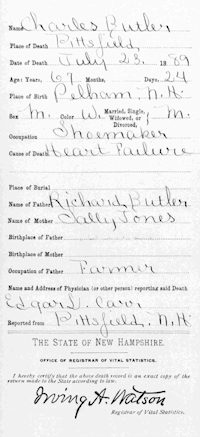 Name Charles Butler
Place of Death Pittsfield,
Date of Death July 23. 1889
Age: Years, 67 Months, Days, 24
Place of Birth Pelham, N.H.
Sex M. Color W. Married, Single, Widowed, or Divorced, M.
Occupation Shoemaker
Cause of Death Heart Failure
Place of Burial
Name of Father Richard Butler
Name of Mother Sally Jones
Birthplace of Father
Birthplace of Mother
Occupation of Father Farmer
Name and Address of Physician (or other person) reporting said Death
Edgar L. Carr
Reported from Pittsfield, N.H.
THE STATE OF NEW HAMPSHIRE.
OFFICE OF REGISTRAR OF VITAL STATISTICS.
I hereby certify that the above death record is an exact copy of the
return made to the State according to law.
Irving A. Watson
Registrar of Vital Statistics.